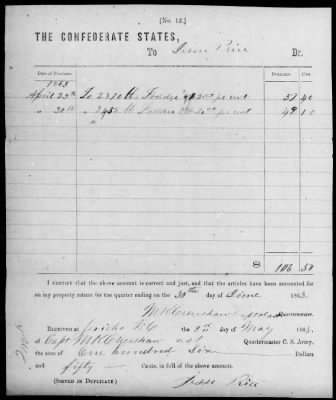 [No. 12.]
THE CONFEDERATE STATES,
To Jesse Rice Dr.
Date of Purchase. Dollars. Cts.
1863
April 25th To 2870 lbs Fodder @ $2.00 per cwt 57 40
" 30th " 2455 lb Fodder @ 2.00 per cwt 49 10
106 50
I CERTIFY that the above account is correct and just, and that the articles have been accounted for
on my property return for the quarter ending on the 30th day of June 1863.
M K Crenshaw Capt &
Quartermaster.
RECEIVED at Jericho the 2nd day of May 1863,
of Capt M K Crenshaw Quartermaster C. S. Army,
the sum of One hundred Six Dollars
and fifty — Cents, in full of the above account.
(SIGNED IN DUPLICATE.) Jesse Rice